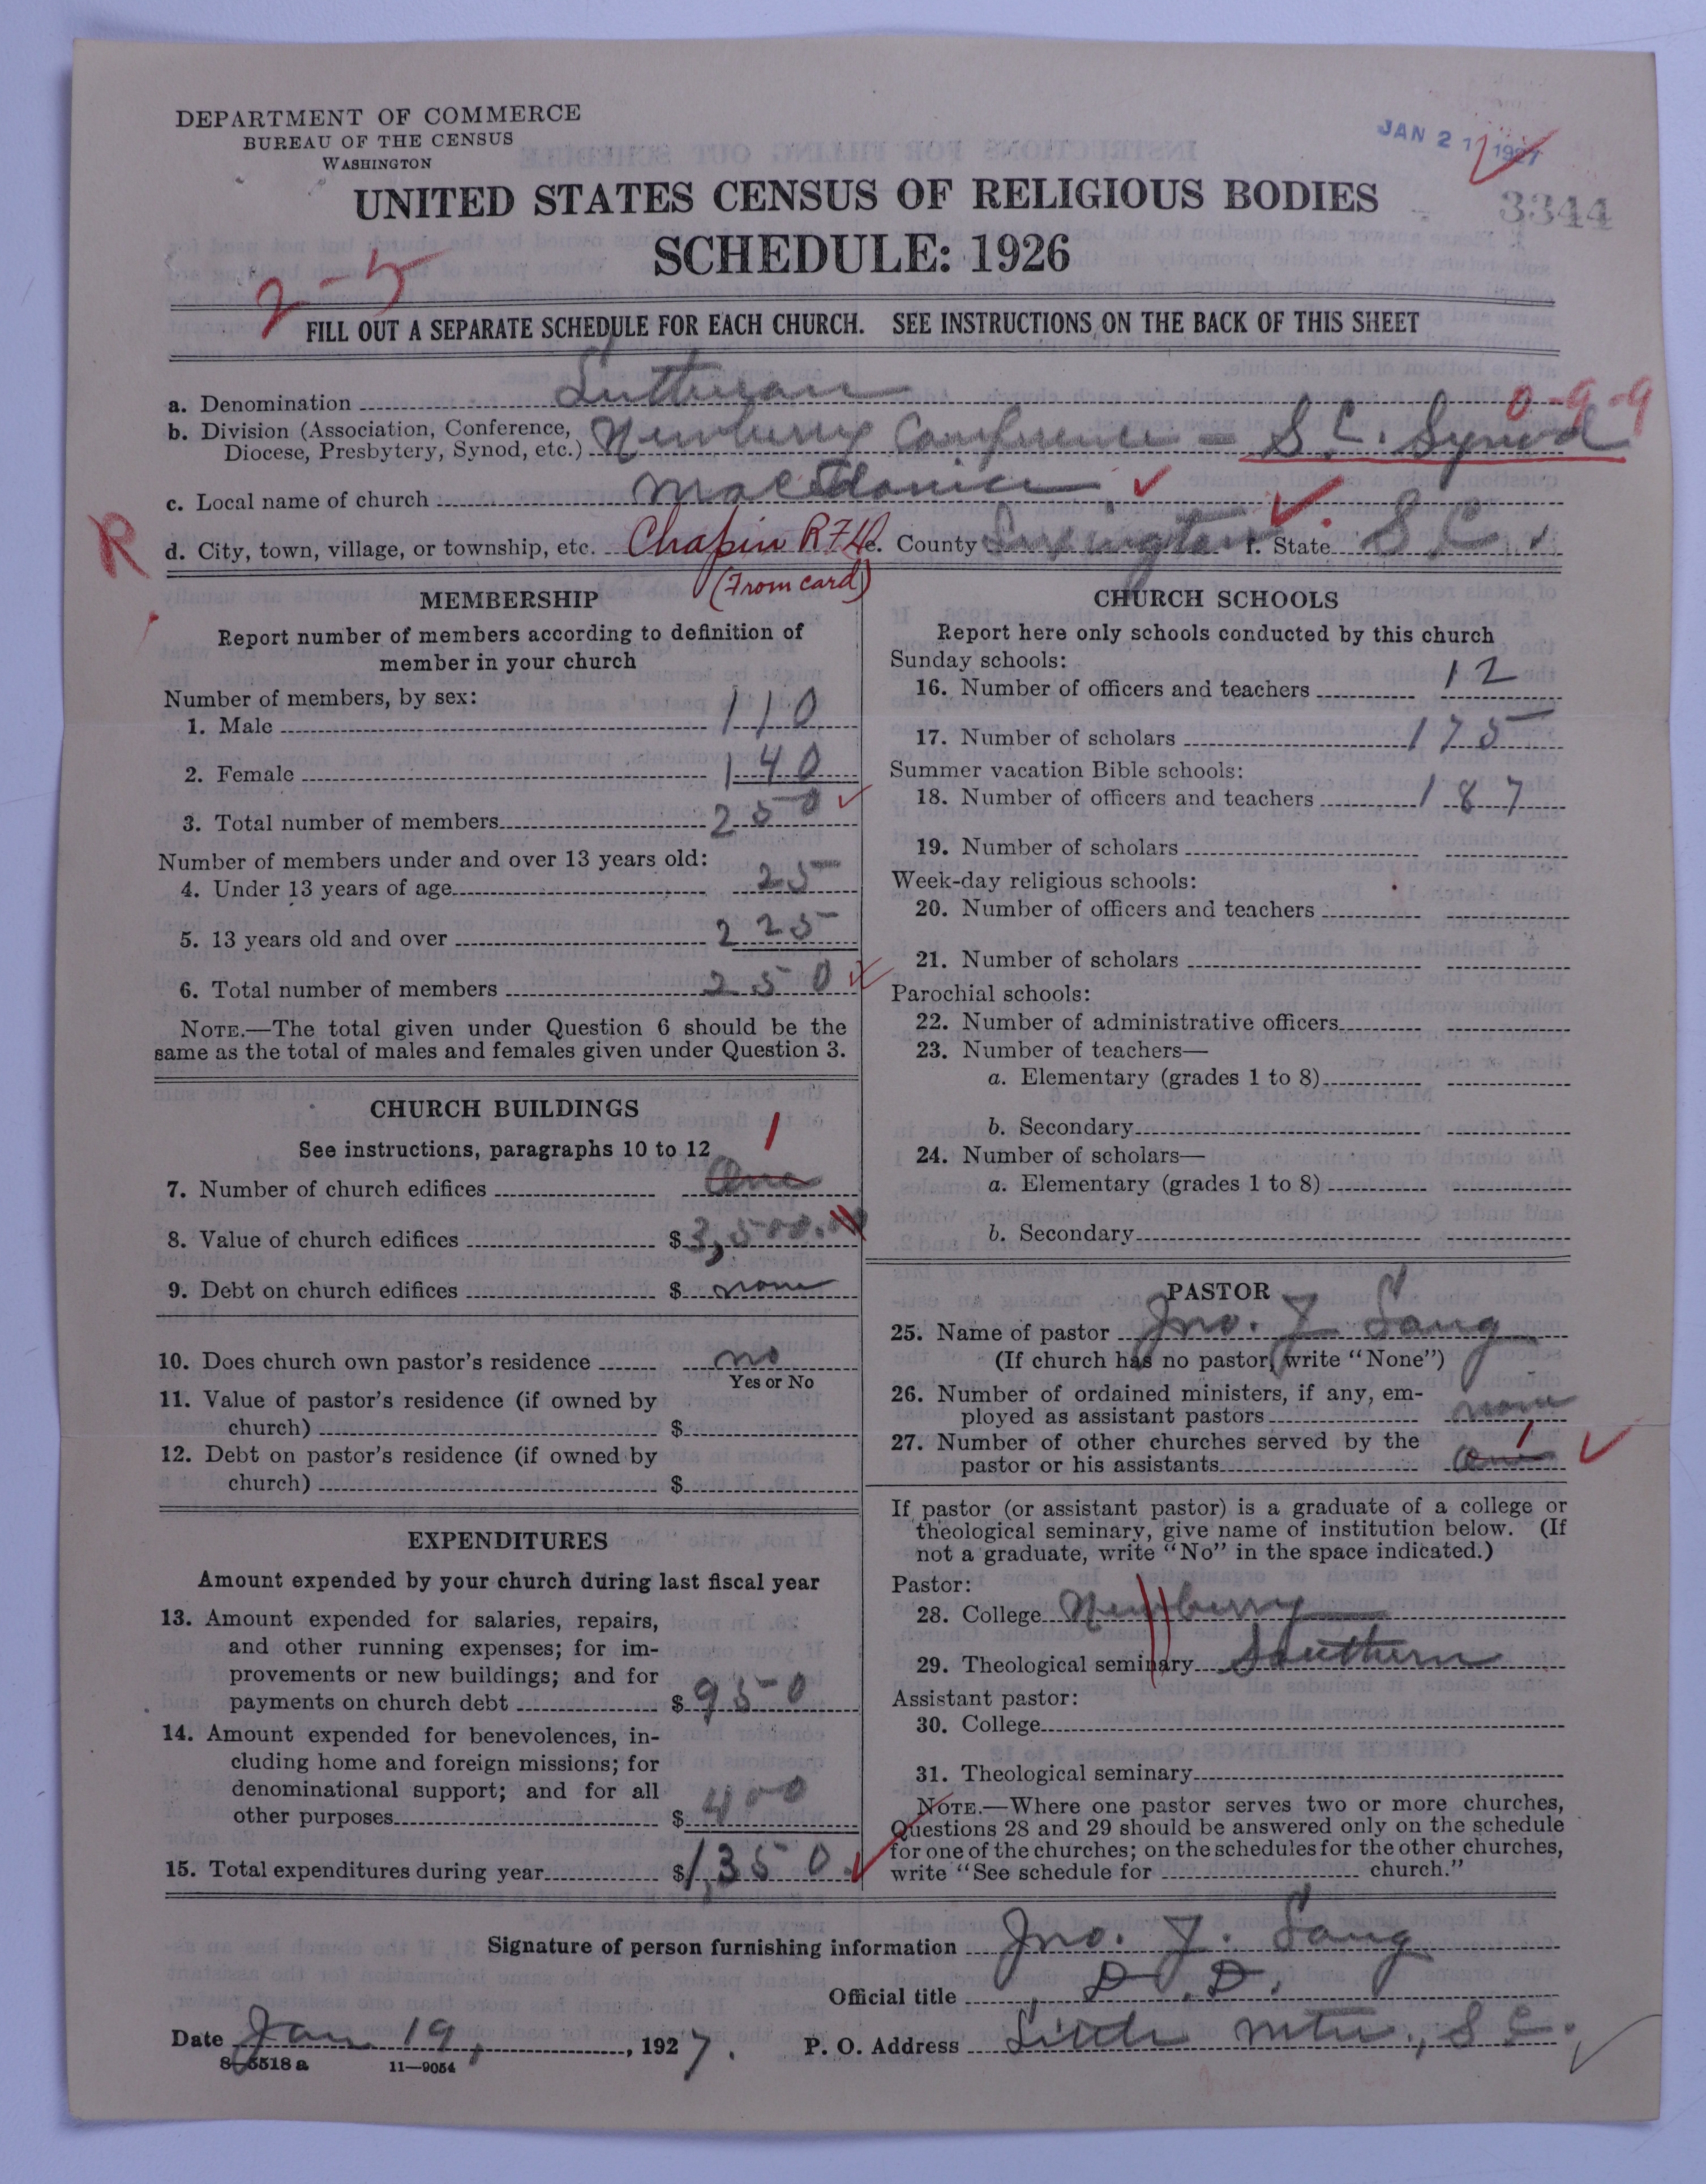 DEPARTMENT OF COMMERCE
BUREAU OF THE CENSUS
WASHINGTON
JAN 21 1927
UNITED STATES CENSUS OF RELIGIOUS BODIES
3344
SCHEDULE: 1926
2-5
FILL OUT A SEPARATE SCHEDULE FOR EACH CHURCH. SEE INSTRUCTIONS ON THE BACK OF THIS SHEET
a. Denomination Lutheran
0-9-9
b. Division (Association, Conference, Diocese, Presbytery, Synod, etc.) Newberry Conference - S.C. Synod
c. Local name of church Macedonia
R
d. City, town, village, or township, etc. Chapin RFD e. County Lexington f. State S C
(From card)
MEMBERSHIP
Report number of members according to definition of
member in your church
Number of members, by sex:
1. Male 110
2. Female 140
3. Total number of members 250
Number of members under and over 13 years old:
4. Under 13 years of age 25
5. 13 years old and over 225
6. Total number of members 250
NOTE.—The total given under Question 6 should be the
same as the total of males and females given under Question 3.
CHURCH BUILDINGS
See instructions, paragraphs 10 to 12
1
7. Number of church edifices One
8. Value of church edifices $ 3,500.00
9. Debt on church edifices $ none
10. Does church own pastor's residence no
Yes or No
11. Value of pastor's residence (if owned by
church) $
12. Debt on pastor's residence (if owned by
church) $
EXPENDITURES
Amount expended by your church during last fiscal year
13. Amount expended for salaries, repairs,
and other running expenses; for im-
provements or new buildings; and for
payments on church debt $ 950
14. Amount expended for benevolences, in-
cluding home and foreign missions; for
denominational support; and for all
other purposes $ 400
15. Total expenditures during year $ 1,350.
CHURCH SCHOOLS
Report here only schools conducted by this church
Sunday schools:
16. Number of officers and teachers 12
17. Number of scholars 175
Summer vacation Bible schools:
18. Number of officers and teachers 187
19. Number of scholars
Week-day religious schools:
20. Number of officers and teachers
21. Number of scholars
Parochial schools:
22. Number of administrative officers
23. Number of teachers—
a. Elementary (grades 1 to 8)
b. Secondary
24. Number of scholars—
a. Elementary (grades 1 to 8)
b. Secondary
PASTOR
25. Name of pastor Jno. J Long
(If church has no pastor, write "None")
26. Number of ordained ministers, if any, em-
ployed as assistant pastors none
27. Number of other churches served by the
pastor or his assistants One 1
If pastor (or assistant pastor) is a graduate of a college or
theological seminary, give name of institution below. (If
not a graduate, write "No" in the space indicated.)
Pastor:
28. College Newberry
29. Theological seminary Southern
Assistant pastor:
30. College
31. Theological seminary
NOTE.—Where one pastor serves two or more churches,
Questions 28 and 29 should be answered only on the schedule
for one of the churches; on the schedules for the other churches,
write "See schedule for church."
Signature of person furnishing information Jno. J. Long
Official title D.D.
Date Jan 19, 1927. P. O. Address Little Mtn., S.C.
8-5518 a 11-9054